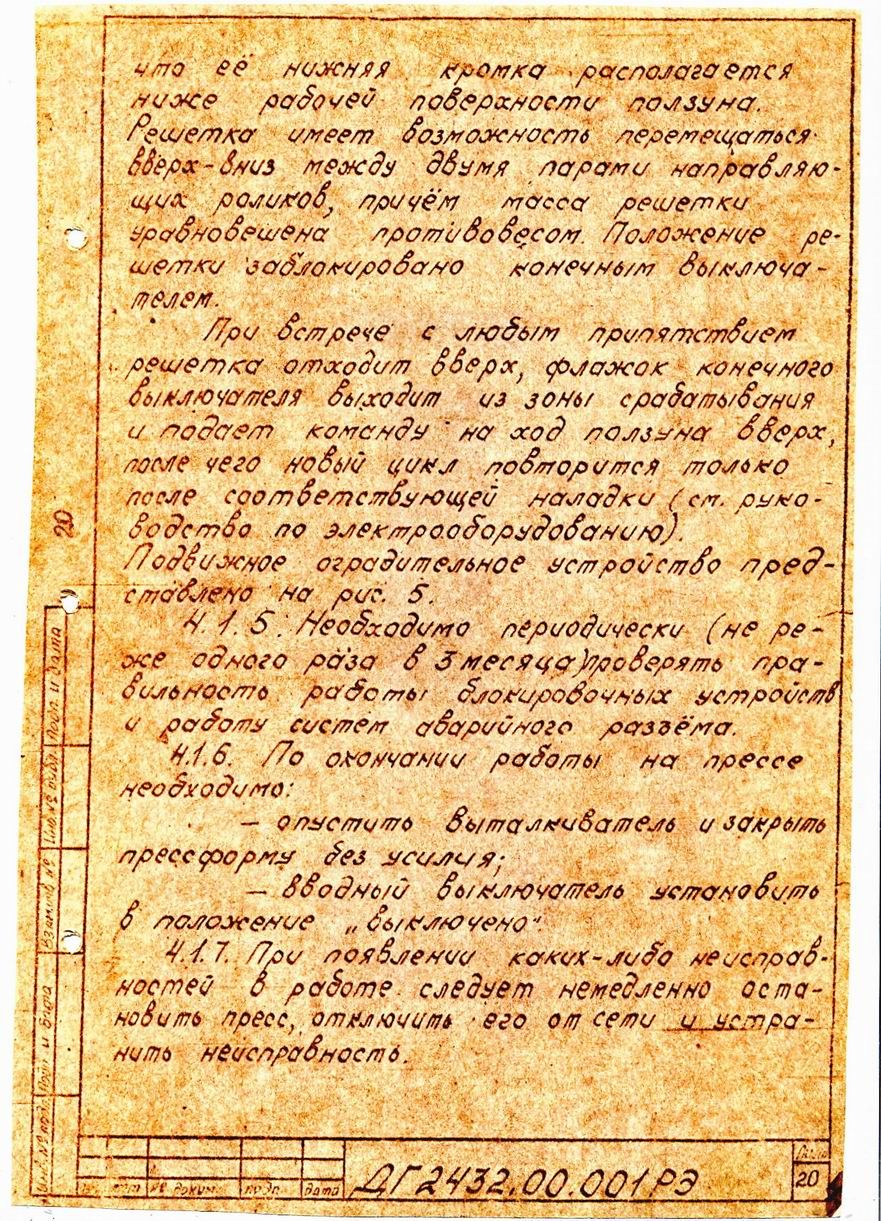 что её нижняя кромка располагается
ниже рабочей поверхности ползуна.
Решетка имеет возможность перемещаться
вверх-вниз между двумя парами направляю-
щих роликов, причём масса решетки
уравновешена противовесом. Положение ре-
шетки заблокировано конечным выключа-
телем.
При встрече с любым припятствием
решетка отходит вверх, флажок конечного
выключателя выходит из зоны срабатывания
и подает команду на ход ползуна вверх,
после чего новый цикл повторится только
после соответствующей наладки (см. руко-
водство по электрооборудованию).
Подвижное оградительное устройство пред-
ставлено на рис. 5.
4.1.5. Необходимо периодически (не ре-
же одного раза в 3 месяца) проверять пра-
вильность работы блокировочных устройств
и работу систем аварийного разъёма.
4.1.6. По окончании работы на прессе
необходимо:
– опустить выталкиватель и закрыть
прессформу без усилия;
– вводный выключатель установить
в положение „выключено“
4.1.7. При появлении каких-либо неисправ-
ностей в работе следует немедленно оста-
новить пресс, отключить его от сети и устра-
нить неисправность.
20
Подп. и дата
Инв. № дубл.
Взам. инв. №
Подп. и дата
Инв. № подл.
лист № докум. подп. дата
ДГ2432.00.001РЭ
Лист
20